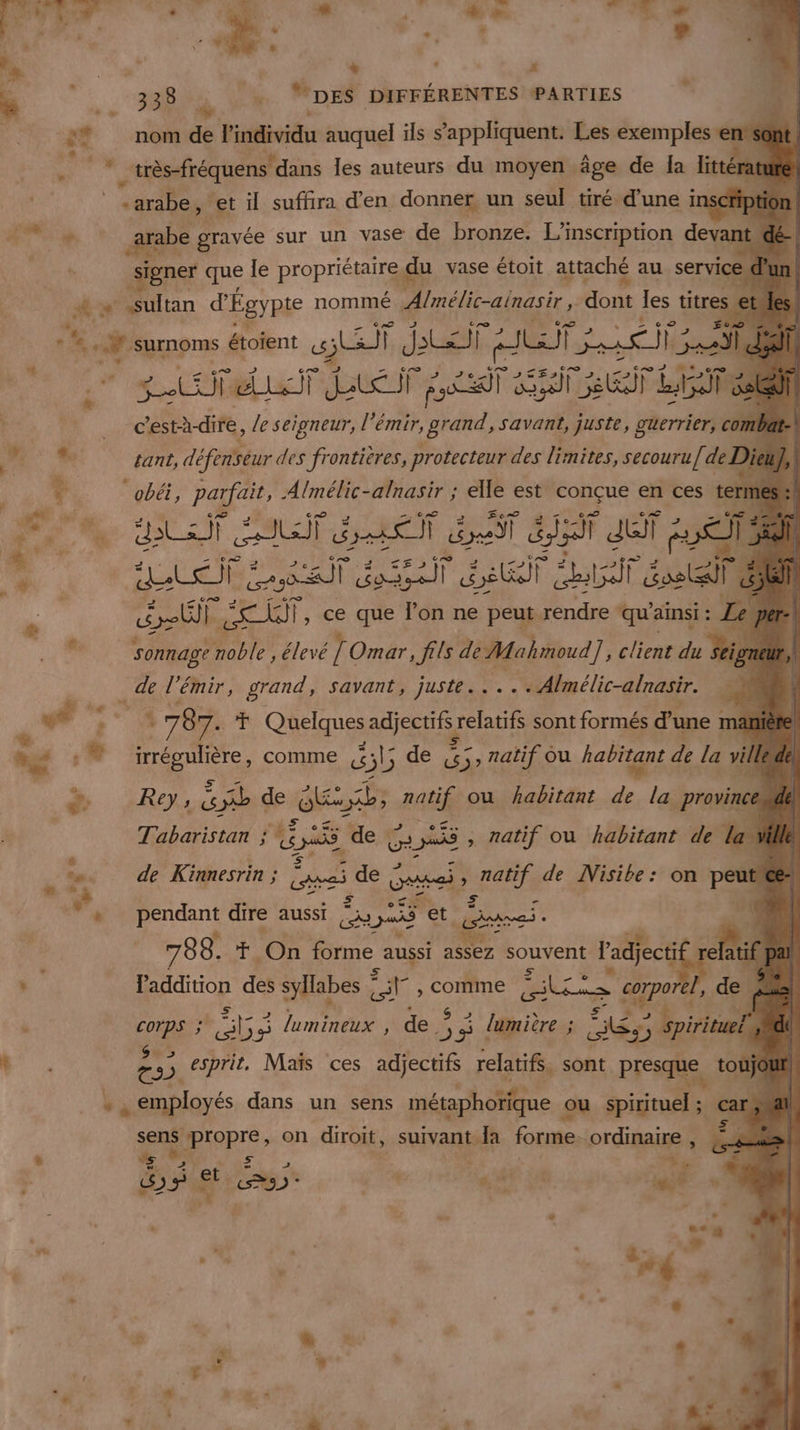 338 DES DIFFÉRENTES PARTIES
nom de l'individu auquel ils s'appliquent. Les exemples en sont
très-fréquens dans les auteurs du moyen âge de la littérature
arabe, et il suffira d'en donner un seul tiré d'une inscription
arabe gravée sur un vase de bronze. L'inscription devant dé-
signer que le propriétaire du vase étoit attaché au service d'un
sultan d'Égypte nommé Almélic-alnasir, dont les titres et les
surnoms étoient الْعَالِمُ الْعَادِلُ الْغَازِى
الْكَامِلُ الْمَلِكُ النَّاصِرُ
c'est-à-dire, le seigneur, l'émir, grand, savant, juste, guerrier, combat-
tant, défenseur des frontières, protecteur des limites, secouru [de Dieu],
obéi, parfait, Almélic-alnasir ; elle est conçue en ces termes :
الْأَمِيرِىُّ الْكَبِيرِىُّ الْعَالِمِىُّ الْعَادِلِىُّ
الْكَامِلِىُّ
الْمَلَكِىُّ النَّاصِرِىُّ, ce que l'on ne peut rendre qu'ainsi : Le per-
sonnage noble, élevé [Omar, fils de Mahmoud], client du seigneur,
de l'émir, grand, savant, juste..... Almélic-alnasir.
787. † Quelques adjectifs relatifs sont formés d'une manière
irrégulière, comme رَازِىٌّ de رَىٌّ, natif ou habitant de la ville de
Rey, طَبَرِىٌّ de طَبَرِسْتَانُ, natif ou habitant de la province de
Tabaristan ; قِنَّسْرِىٌّ de قِنَّسْرِينُ, natif ou habitant de la ville
de Kinnesrin ; نَصِيبِىٌّ de نَصِيبِينُ, natif de Nisibe : on peut ce-
pendant dire aussi قِنَّسْرِينِىٌّ et نَصِيبِينِىٌّ.
788. † On forme aussi assez souvent l'adjectif relatif par
l'addition des syllabes ـَانِىٌّ, comme جِسْمَانِىٌّ corporel, de جِسْمٌ
corps ; نُورَانِىٌّ lumineux, de نُورٌ lumière ; رُوحَانِىٌّ spirituel, de
رُوحٌ esprit. Mais ces adjectifs relatifs sont presque toujours
employés dans un sens métaphorique ou spirituel ; car, au
sens propre, on diroit, suivant la forme ordinaire, جِسْمِىٌّ
نُورِىٌّ et رُوحِىٌّ.